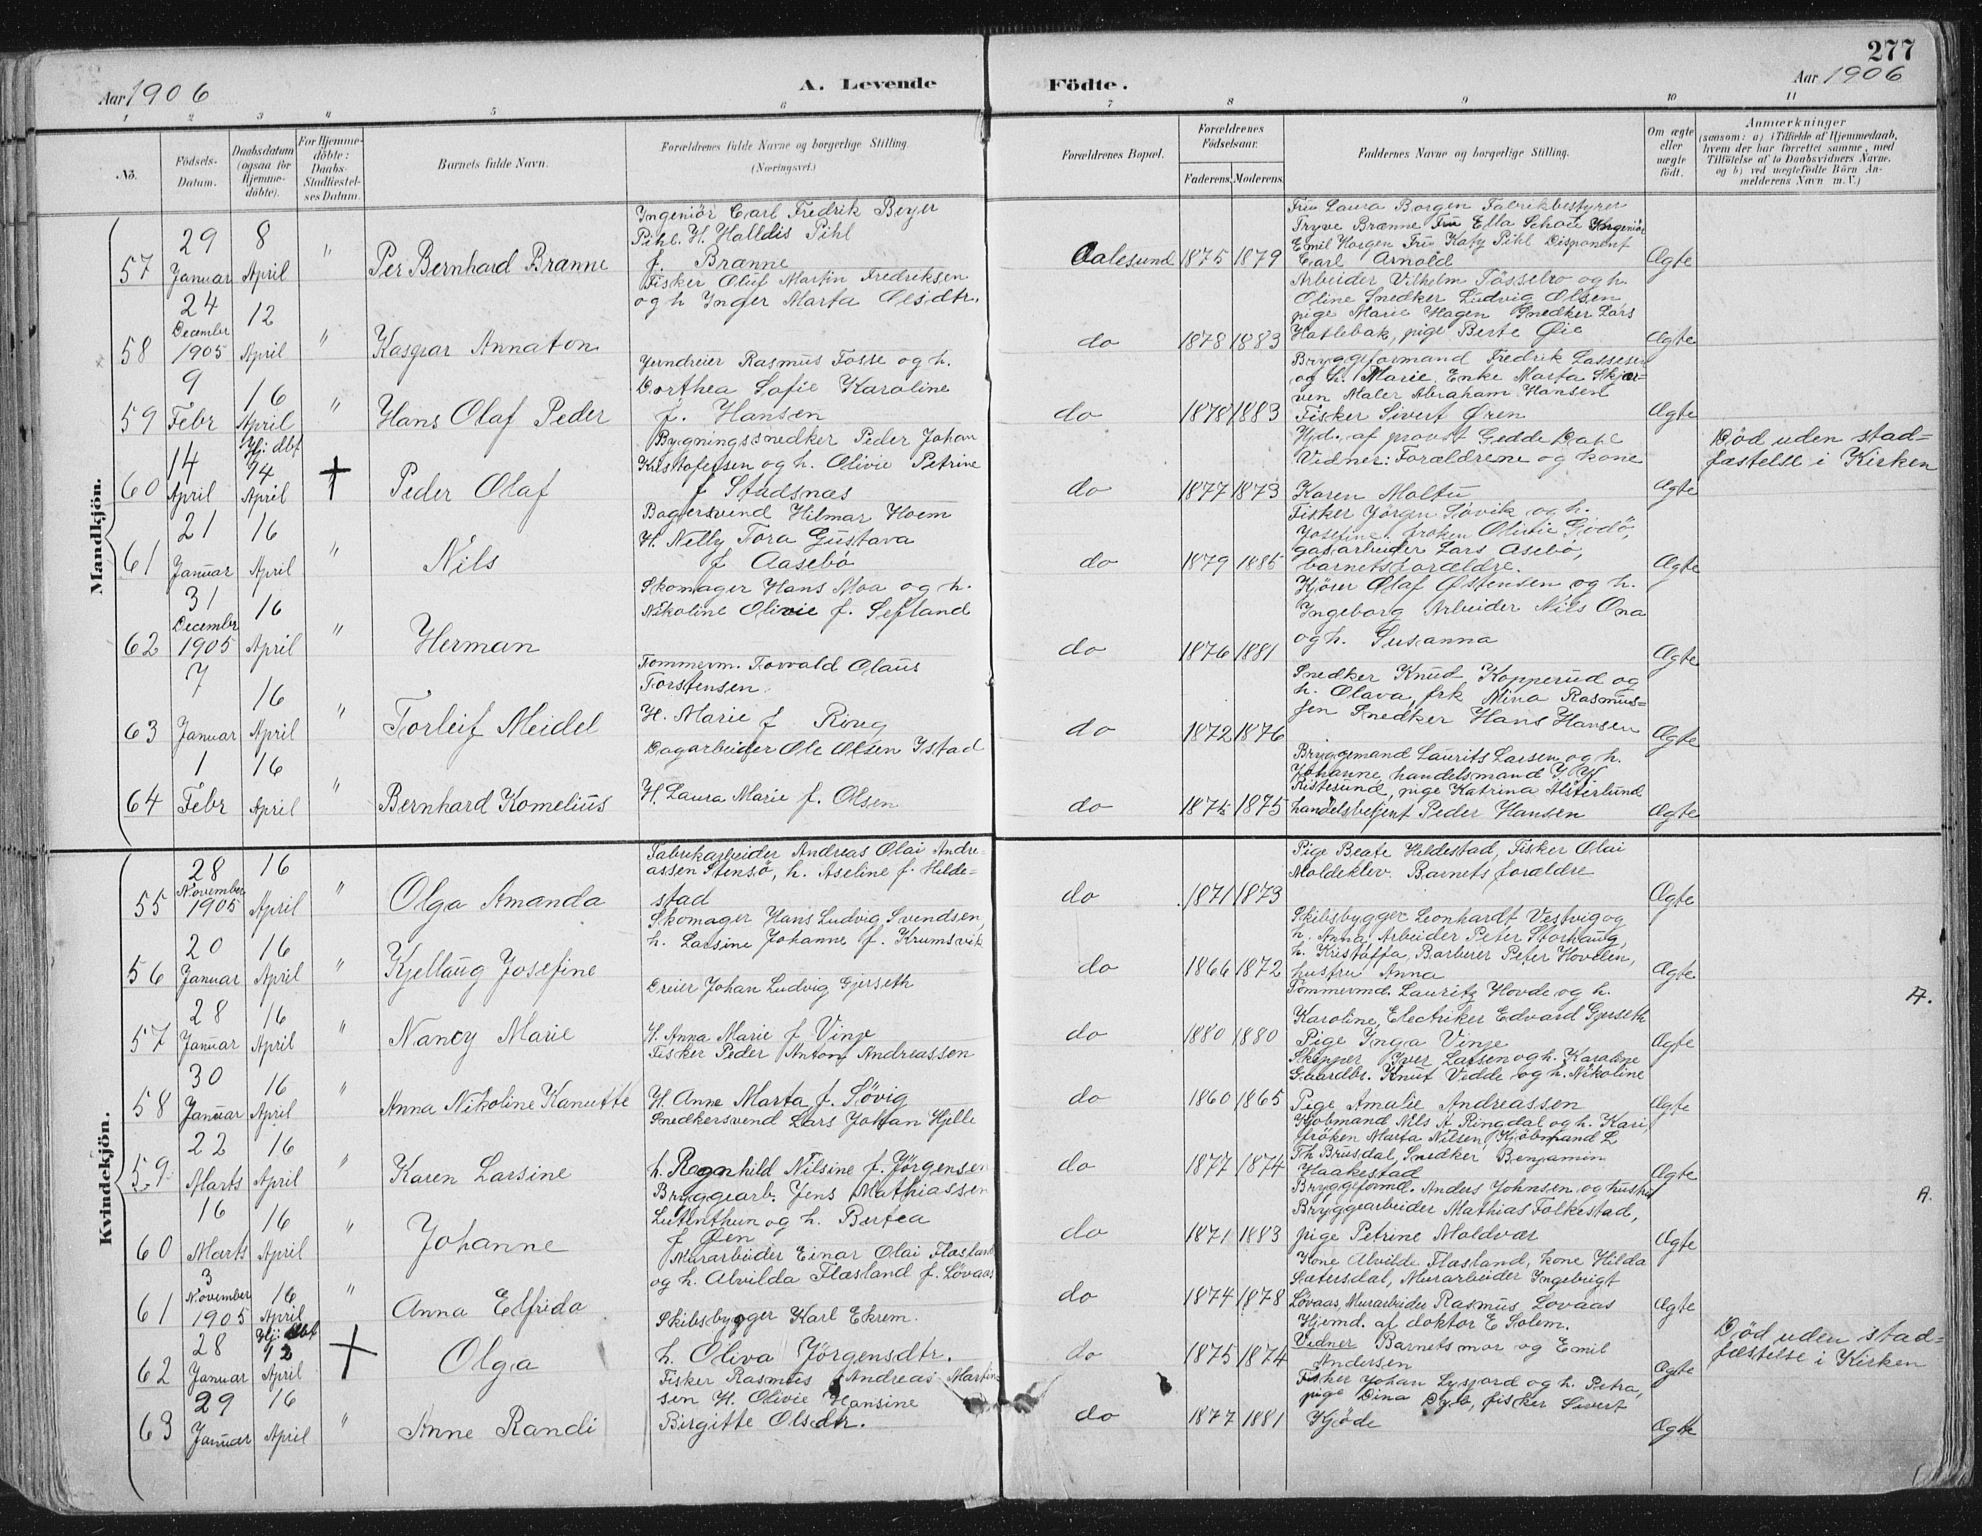 277
Aar 1906
A. Levende
Födte.
Aar 1906
1 2 3 4 5 6 7 8 9 10 11
No.
Födsels-Datum.
Daabsdatum (ogsaa for Hjemme-döbte).
For Hjemme-döbte: Daabs-Stadfæstel-ses Datum.
Barnets fulde Navn.
Forældrenes fulde Navne og borgerlige Stilling. (Næringsvei.)
Forældrenes Bopæl.
Forældrenes Födselsaar.
Faderens. Moderens.
Faddernes Navne og borgerlige Stilling.
Om ægte eller uægte födt.
Anmærkninger
(saasom: a) i Tilfælde af Hjemmedaab, hvem der har forrettet samme, med Tilföielse af to Daabsvidners Navne, og b) ved uægtefödte Börn An-melderens Navn m. V.)
Mandkjön.
57
29 Januar
8 April
"
Per Bernhard Brænne
Ingeniör Carl Fredrik Beyer
Pihl. H. Halldis Pihl
f. Brænne
Aalesund
1875 1879
Fru Laura Borgen Fabrikbestyrer
Trygve Brænne Fru Ella Ingeniör
Emil Horgen Fru Katy Pihl Disponent
Carl Arnold
Ægte
58
24 December 1905
12 April
"
Kaspar Annaton
Fisker Oluf Martin Fredriksen
og h Inger Marta Olsdtr.
do
1878 1883
Arbeider Vilhelm Fösselro og h.
Oline Snedker Ludvig Olsen
pige Marie Hagen Snedker Lars
Hatlebak, pige Berte Øie
Ægte
59
9 Febr
16 April
"
Hans Olaf Peder
Jerndreier Rasmus Fosse og h.
Dorthea Sofie Karoline
f. Hansen
do
1878 1883
Bryggeformand Fredrik Lassesen
og h. Marie. Enke Marta Skjær-
ven Maler Abraham Hansen
Fisker Sivert Øren
Ægte
60
14 April
Hj: dbt 14 April
+
Peder Olaf
Bygningssnedker Peder Johan
Kristofersen og h. Olivie Petrine
f Stadsnæs
do
1877 1879
Hjd. af provst Gedde Dahl
Vidner: Forældrene og kone
Karen Moltu
Ægte
Död uden stad-
fæstelse i Kirken
61
21 Januar
16 April
"
Nils
Bagersvend Hilmar Hoem
H. Nelly Tora Gustava
f Aasebö
do
1879 1885
Fisker Jörgen Søvik og h.
Josefine. fröken Olivie Godö,
gasarbeider Lars Asebö,
barnets forældre.
Ægte
62
31 December 1905
16 April
"
Herman
Skomager Hans Moa og h.
Nikoline Olivie f. Sefland
do
1876 1881
Kjörer Olaf Østensen og h.
Ingeborg Arbeider Nils Ona
og h. Susanna
Ægte
63
7 Januar
16 April
"
Torleif Meidel
Tømmerm. Torvald Olaus
Torstensen.
H. Marie f Röug
do
1872 1876
Snedker Knud Kopperud og
h. Olava, frk Nina Rasmus-
sen Snedker Hans Hansen
Ægte
64
1 Febr
16 April
"
Bernhard Kornelius
Dagarbeider Ole Olsen Istad
H. Laura Marie f. Olsen
do
1875 1875
Bryggemand Laurits Larsen og h.
Johanne, handelsmand
Ristesund, pige Katrina Alsterlund
handelsbetjent Peder Hansen
Ægte
Kvindekjön.
55
28 November 1905
16 April
"
Olga Amanda
Fabrikarbeider Andreas Olai Andre-
assen Stensö, h. Aseline f. Hilde-
stad
do
1871 1873
Pige Beate Hildestad, Fisker Olai
Moldeklev. Barnets forældre
Ægte
56
20 Januar
16 April
"
Kjellaug Josefine
Skomager Hans Ludvig Svendsen,
h. Larsine Johanne f. Krumsvik
do
1866 1872
Skibsbygger Leonhardt Vestvig og
h. Anna, Arbeider Peter Storhaug,
h. Kristaffa, Barberer Peter Hovden,
hustru Anna
Ægte
57
28 Januar
16 April
"
Nancy Marie
Dreier Johan Ludvig Gjerseth
H. Anna Marie f Vinje
do
1880 1880
Tömmermd. Lauritz Hovde og h.
Karoline, Electriker Edvard Gjerseth
Pige Inga Vinje
Ægte
A.
58
30 Januar
16 April
"
Anna Nikoline Kanutte
Fisker Peder Anton Andreassen
H. Anne Marta f. Søvig
do
1860 1865
Skipper Iver Larsen og h. Karoline
Gaardbr. Knut Vedde og h. Nikoline
Pige Amalie Andreassen
Ægte
59
22 Marts
16 April
"
Karen Larsine
Snedkersvend Lars Johan Hjelle
h. Ragnhild Nilsine f. Jörgensen
do
1877 1874
Kjöbmand Nils A Ringdal og h. Kari,
fröken Marta Nilsen, Kjöbmand L
Th Brusdal, Snedker Benjamin
Haakestad
Ægte
A.
60
16 Marts
16 April
"
Johanne
Bryggearb. Jens Mathiassen
Lutenthun og h. Bertea
f Øen
do
1871 1883
Bryggeformd. Anders Johnsen og hustru
Bryggearbeider Mathias Folkestad,
pige Petrine Moldvær
Ægte
61
3 November 1905
16 April
"
Anna Elfrida
Murarbeider Einar Olai Flæsland
og h. Alvilda Flæsland f. Løvaas
do
1874 1878
Kone Alvilde Flæsland, kone Hilda
Sætersdal, Murarbeider Ingebrigt
Løvaas, Murarbeider Rasmus Lovaas
Ægte
62
28 Januar
Hj: dbt 12 April
+
Olga
Skibsbygger Karl Ekrem.
h. Oliva Jörgensdtr.
do
1875 1874
Hjemd. af doktor E Solem.
Vidner Barnets mor og Emil
Andersen
Ægte
Död uden stad-
fæstelse i Kirken
63
29 Januar
16 April
"
Anne Randi
Fisker Rasmus Andreas Martin
sen H. Olivie Hansine
Birgitte Olsdtr.
do
1877 1881
Fisker Johan Lysfjord og h. Petra,
pige Dina Dyb, fisker Sivert
Kjöde
Ægte